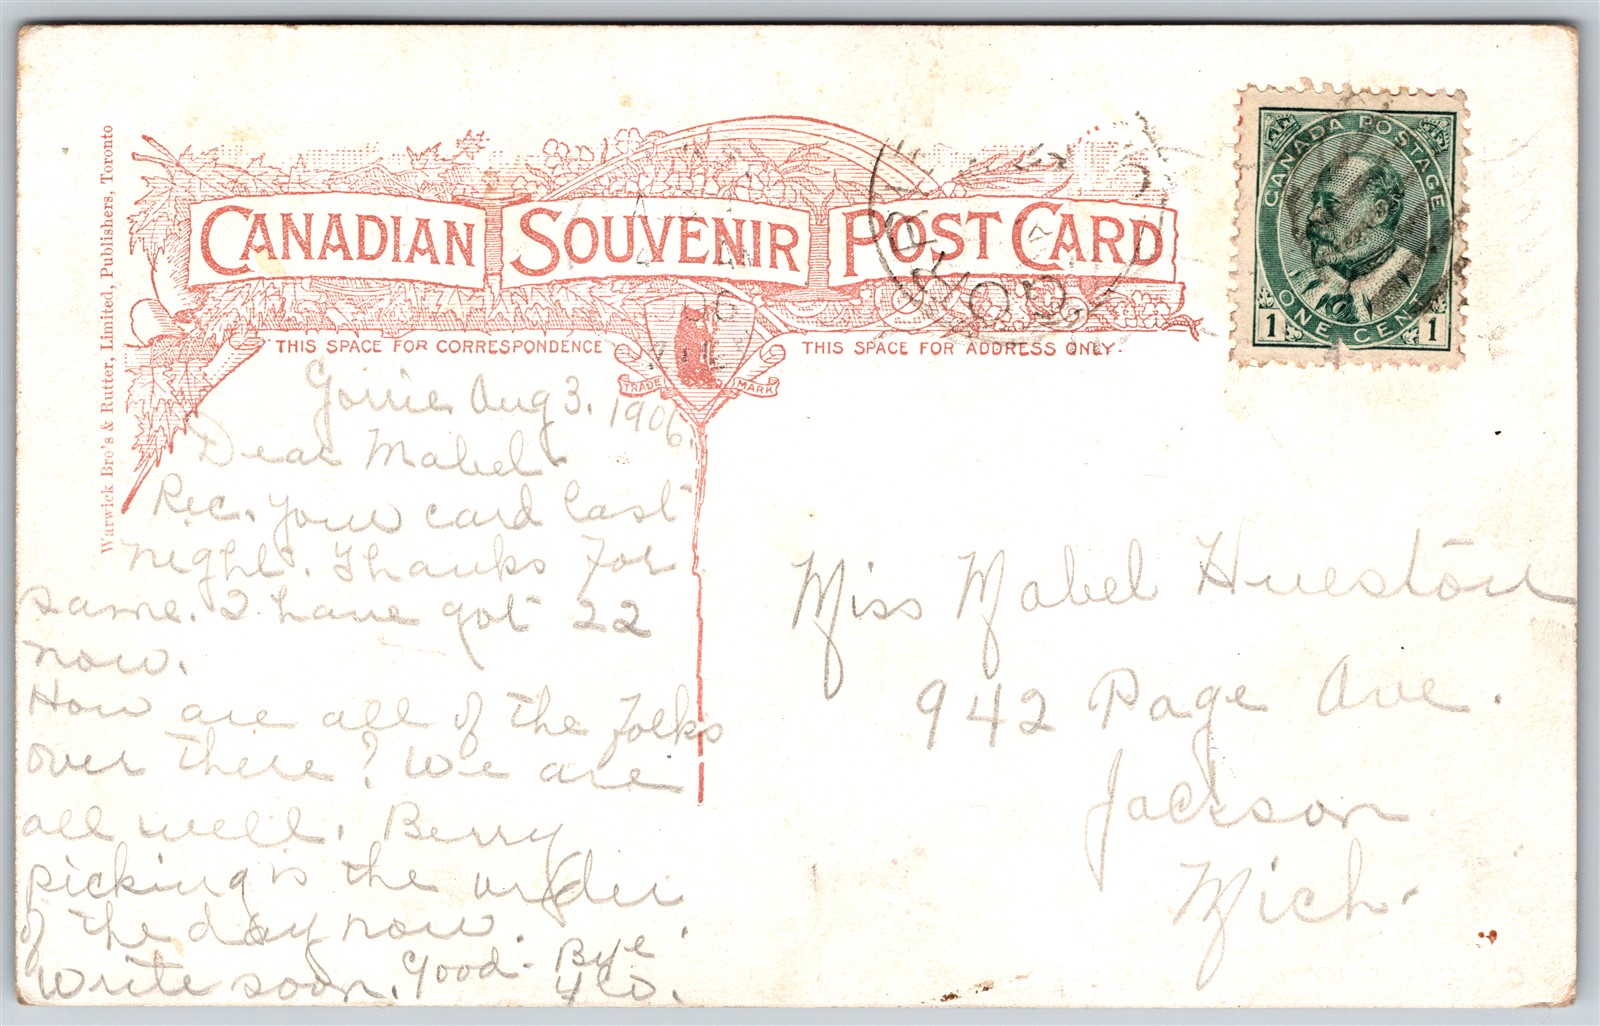 Warwick Bro's & Rutter, Limited, Publishers, Toronto
CANADIAN SOUVENIR POST CARD
THIS SPACE FOR CORRESPONDENCE
THIS SPACE FOR ADDRESS ONLY.
TRADE MARK
CANADA POSTAGE
1 ONE CENT 1
06
Gorrie Aug 3. 1906.
Dear Mabel
Rec. your card last
night. Thanks for
same. I have got 22
now.
How are all of the folks
over there? We are
all well. Berry
picking is the order
of the day now.
Write soon. Good-Bye
Miss Mabel Hueston
942 Page Ave.
Jackson
Mich.